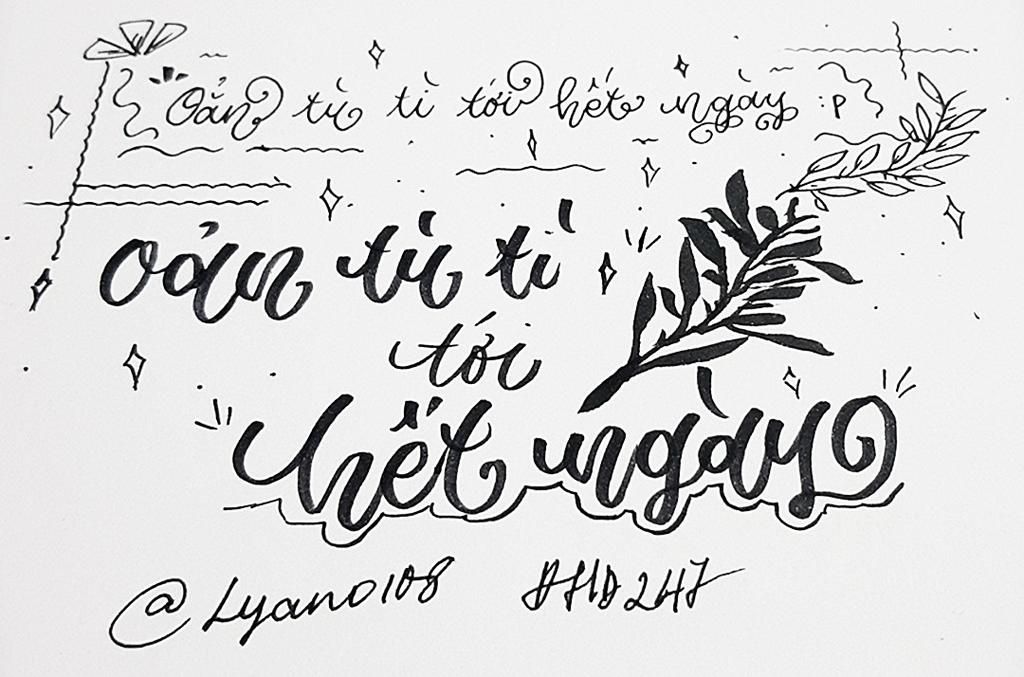 Oẳn tù tì tới hết ngày :P
oẳn tù tì
tới
hết ngày
@Lyano108 ĐHĐ247